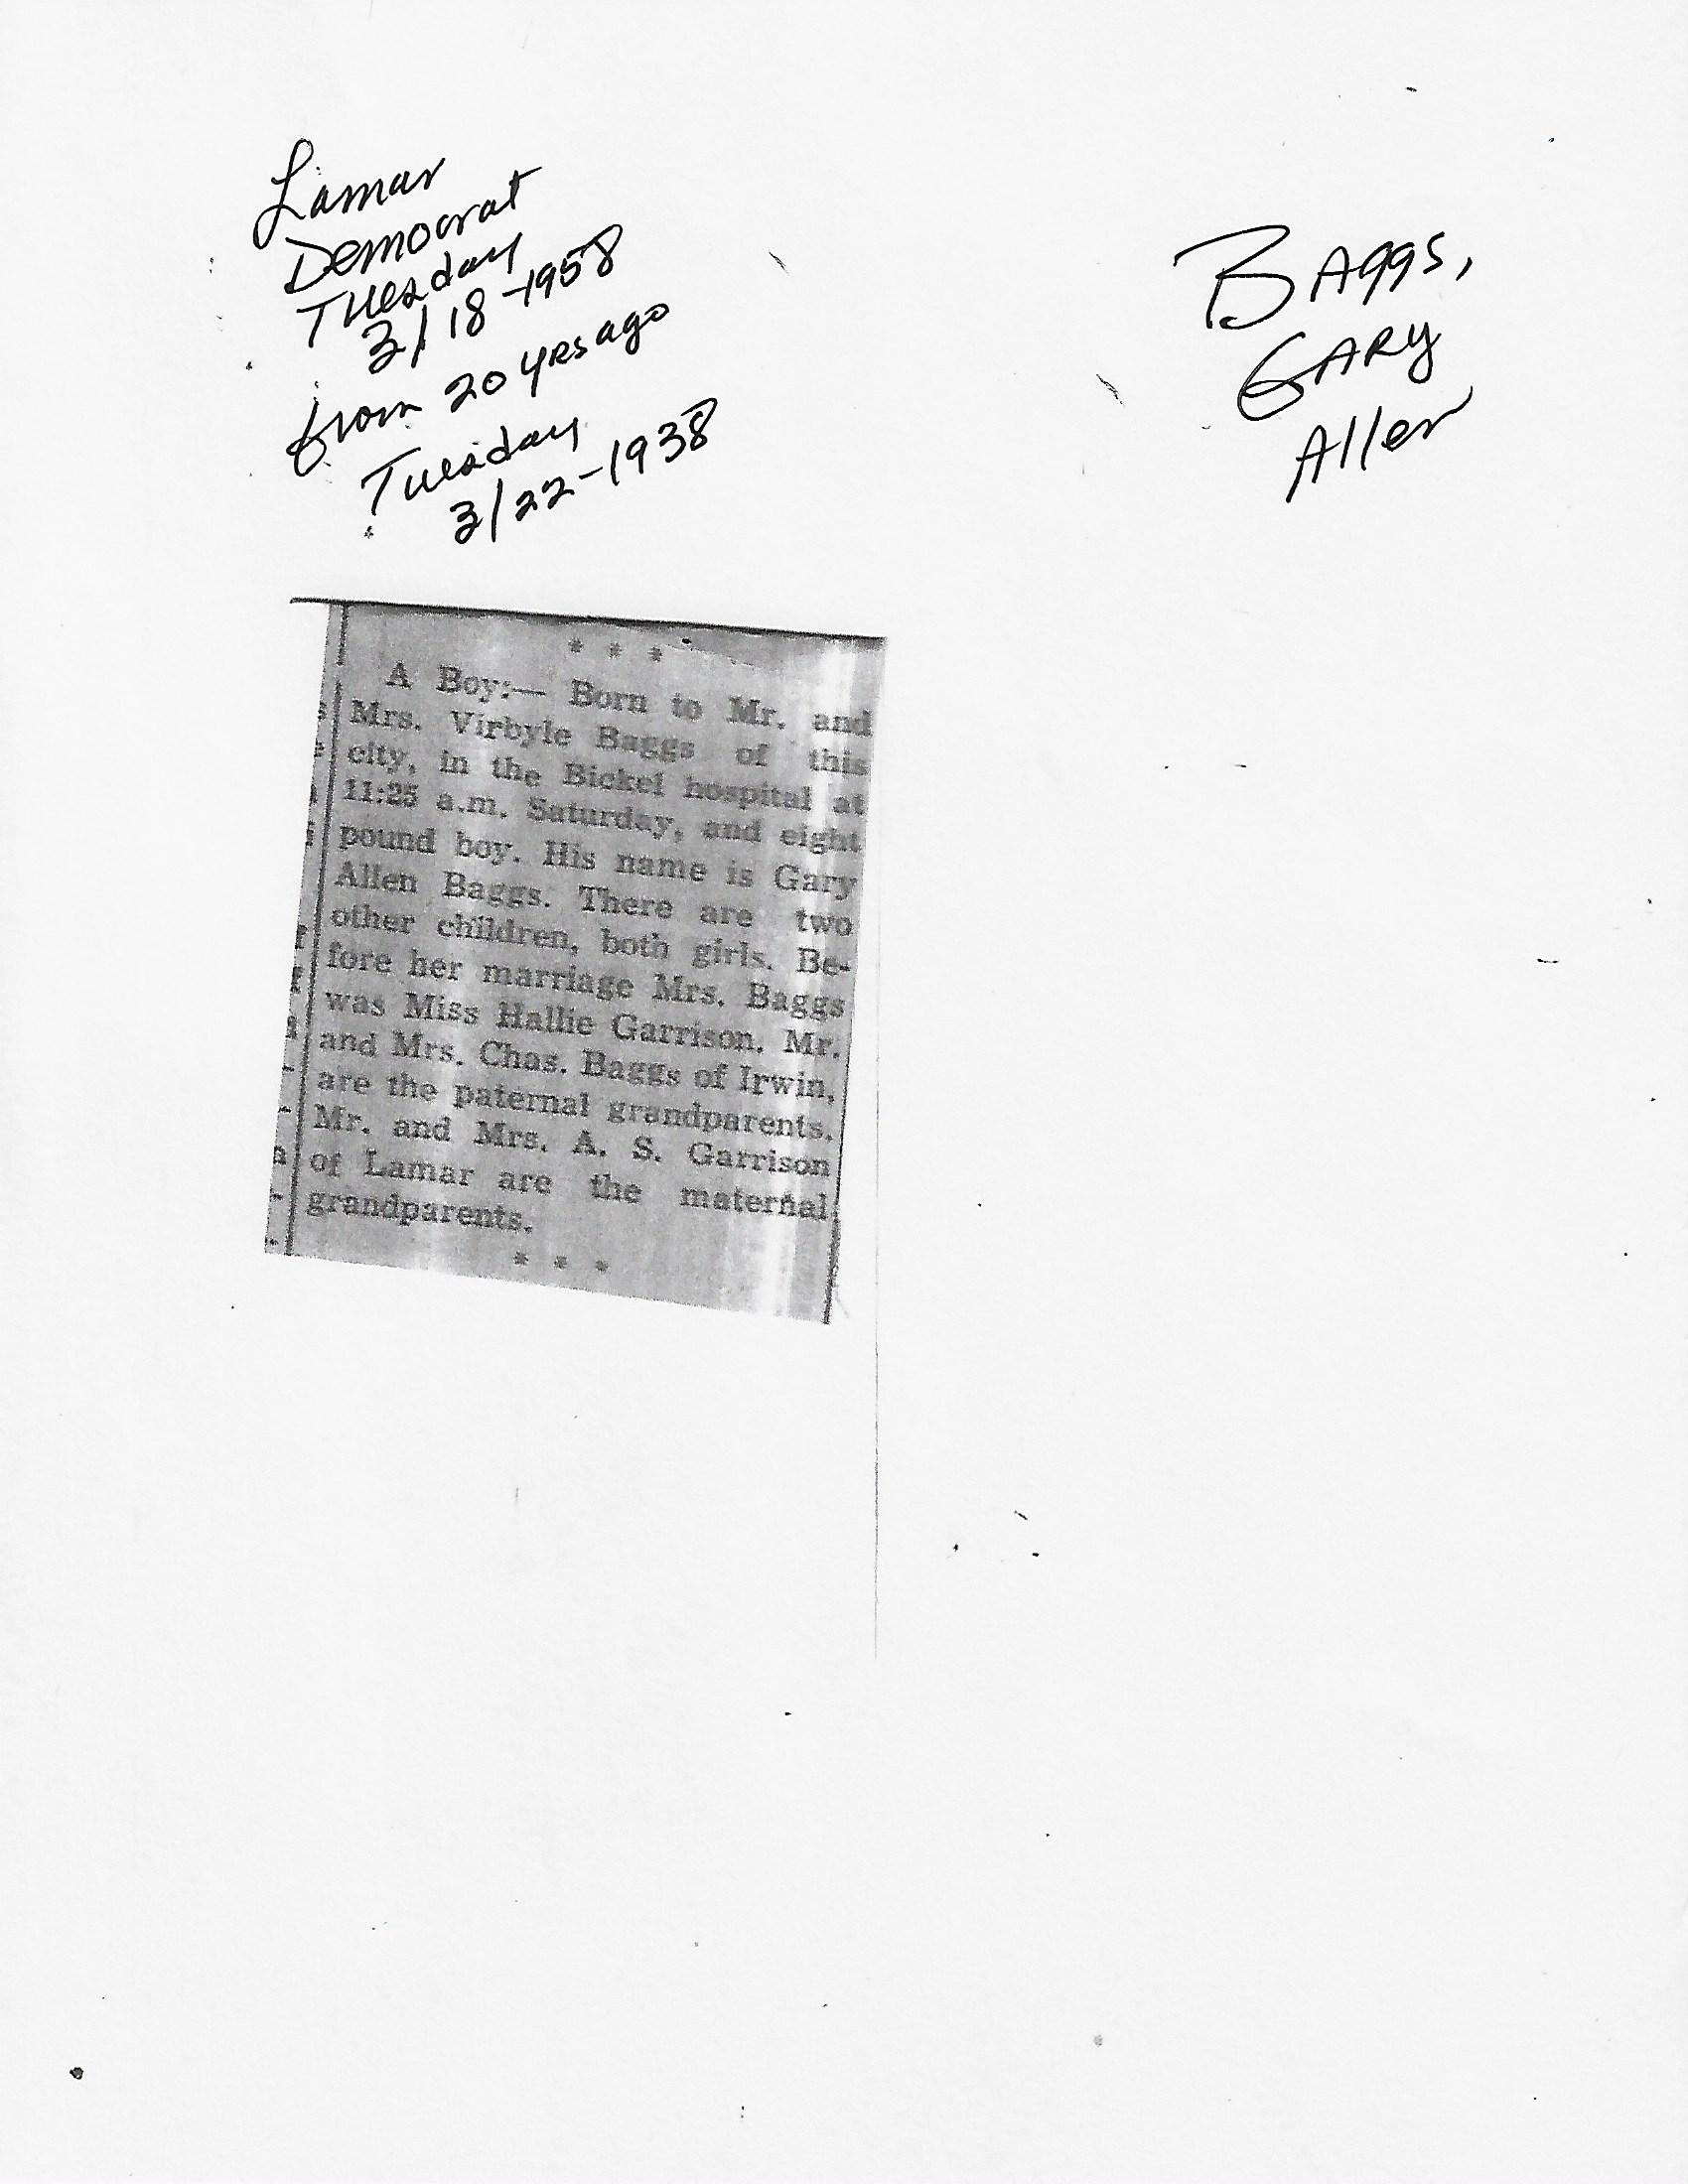 Lamar
Democrat
Tuesday
3/18-1958
from 20 yrs ago
Tuesday
3/22-1938
BAggs,
GARY
Allen
* * *
A Boy:— Born to Mr. and
Mrs. Virbyle Baggs of this
city, in the Bickel hospital at
11:25 a.m. Saturday, and eight
pound boy. His name is Gary
Allen Baggs. There are two
other children, both girls. Be-
fore her marriage Mrs. Baggs
was Miss Hallie Garrison. Mr.
and Mrs. Chas. Baggs of Irwin,
are the paternal grandparents.
Mr. and Mrs. A. S. Garrison
of Lamar are the maternal
grandparents.
* * *